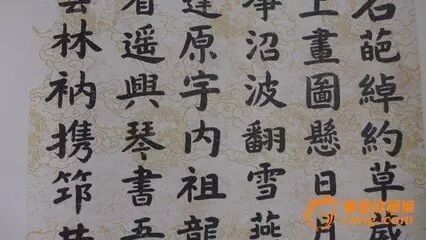 名葩綽約草葳
上畫圖懸日月
沼波翻雪燕
逢原宇内祖龍
遥興琴書吾
雲林衲携筇